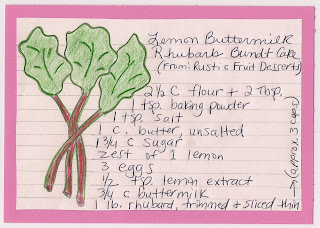 Lemon Buttermilk
Rhubarb Bundt Cake
(From: Rustic Fruit Desserts)
2½ C flour + 2 Tbsp.
1 tsp. baking powder
1 tsp. salt
1 c. butter, unsalted
1¾ C sugar
zest of 1 lemon
3 eggs
½ tsp. lemon extract
¾ c buttermilk
1 lb. rhubarb, trimmed + sliced thin
→ (approx. 3 cups)